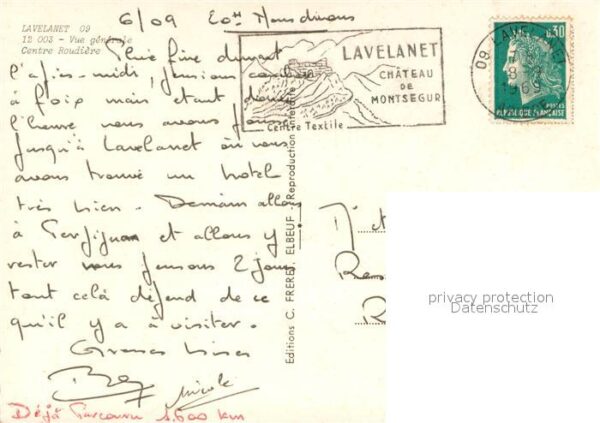 LAVELANET 09
12 003 - Vue générale
Centre Roudière
6/09
Pluie fine durant
l'après-midi, pensions coucher
à Foix mais étant donné
l'heure nous avons poussé
jusqu'à Lavelanet où nous
avons trouvé un hotel
très bien. Demain allons
à Perpignan et allons y
rester nous pensons 2 jours
tout celà dépend de ce
qu'il y a à visiter.
Grosses bises
Nicole
Déjà Parcouru 1.600 km
Editions C. FRERET, ELBEUF - Reproduction interdite
LAVELANET
CHÂTEAU
DE
MONTSEGUR
Centre Textile
09 LAVELANET
1969
0,30
POSTES
REPUBLIQUE FRANÇAISE
privacy protection
Datenschutz